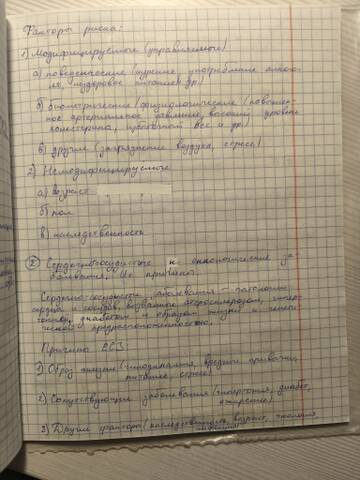 Факторы риска:
1) Модифицируемые (управляемые)
а) поведенческие (курение, употребление алкого-
ля, нездоровое питание и др.)
б) биометрические/физиологические (повышен-
ное артериальное давление, высокий уровень
холестерина, избыточный вес и др.)
в) другие (загрязнение воздуха, стресс)
2) Немодифицируемые
а) возраст
б) пол
в) наследственность
② Сердечно-сосудистые и онкологические за-
болевания, их причины.
Сердечно-сосудистые заболевания – патологии
сердца и сосудов, вызванные атеросклерозом, гипер-
тонией, диабетом и образом жизни и генети-
ческой предрасположенностью.
Причины ССЗ:
1) Образ жизни (гиподинамия, вредные привычки,
питание, стресс)
2) Сопутствующие заболевания (гипертония, диабет,
ожирение)
3) Другие факторы (наследственность, возраст,